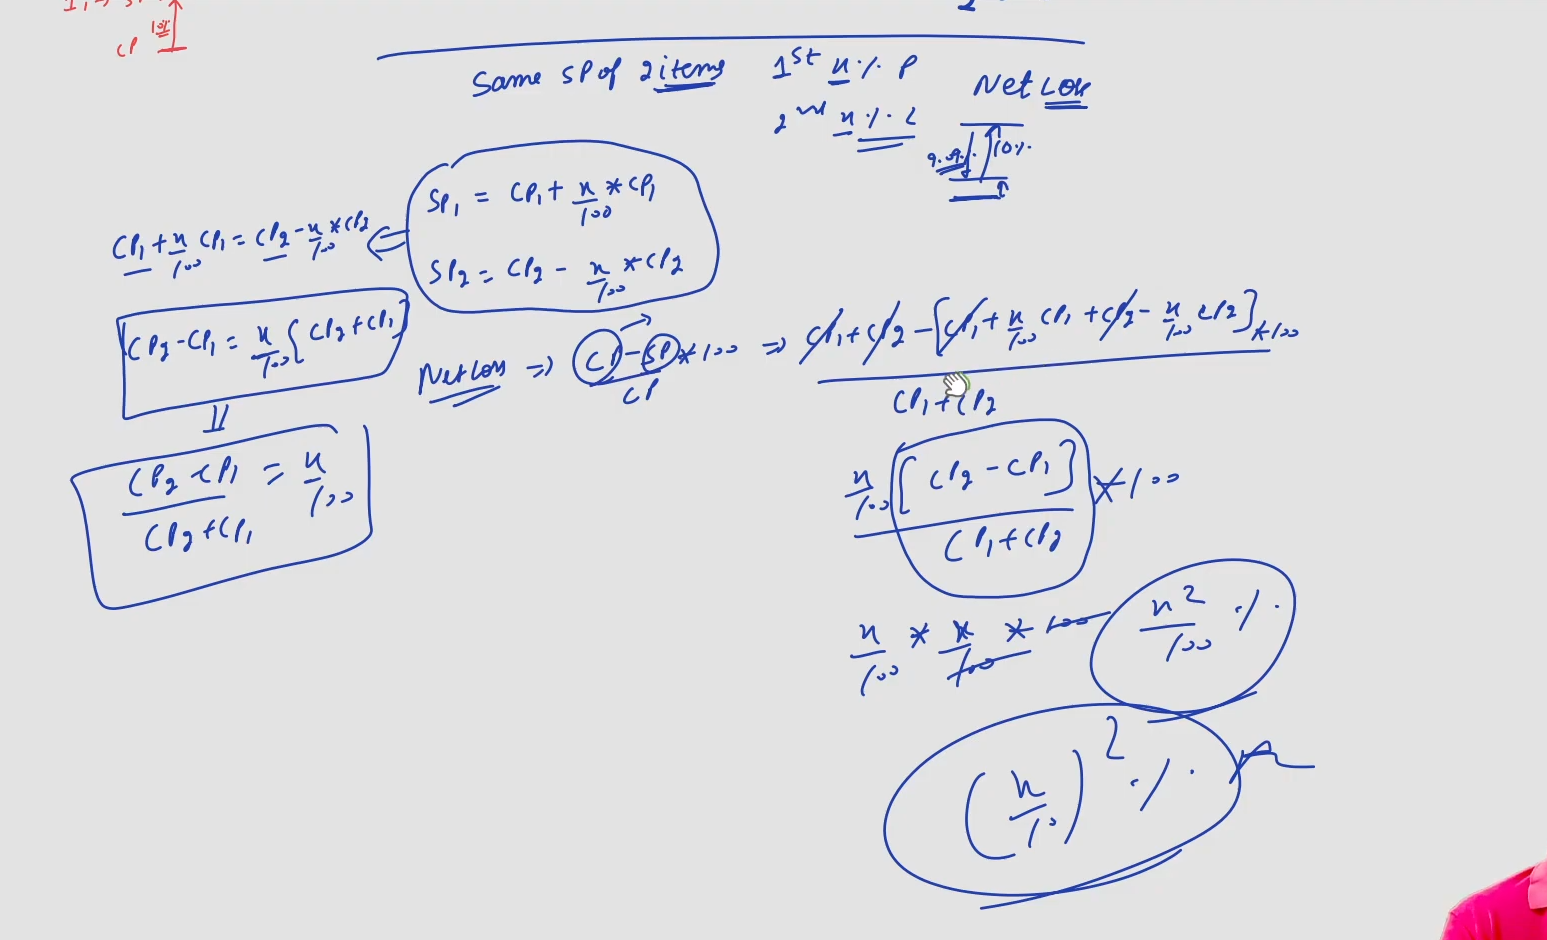 CP 10%
Same SP of 2 items 1st x% P
2nd x% L
Net Loss
9.09% 10%
SP₁ = CP₁ + x/100 * CP₁
SP₂ = CP₂ - x/100 * CP₂
CP₁ + x/100 CP₁ = CP₂ - x/100 * CP₂
CP₂ - CP₁ = x/100 [CP₂ + CP₁]
(CP₂ - CP₁)/(CP₂ + CP₁) = x/100
Net Loss ⇒ (CP - SP)/CP * 100 ⇒ (CP₁ + CP₂ - [CP₁ + x/100 CP₁ + CP₂ - x/100 CP₂])/(CP₁ + CP₂) * 100
x/100 [CP₂ - CP₁]/(CP₁ + CP₂) * 100
x/100 * x/100 * 100 x²/100 %
(x/10)² %